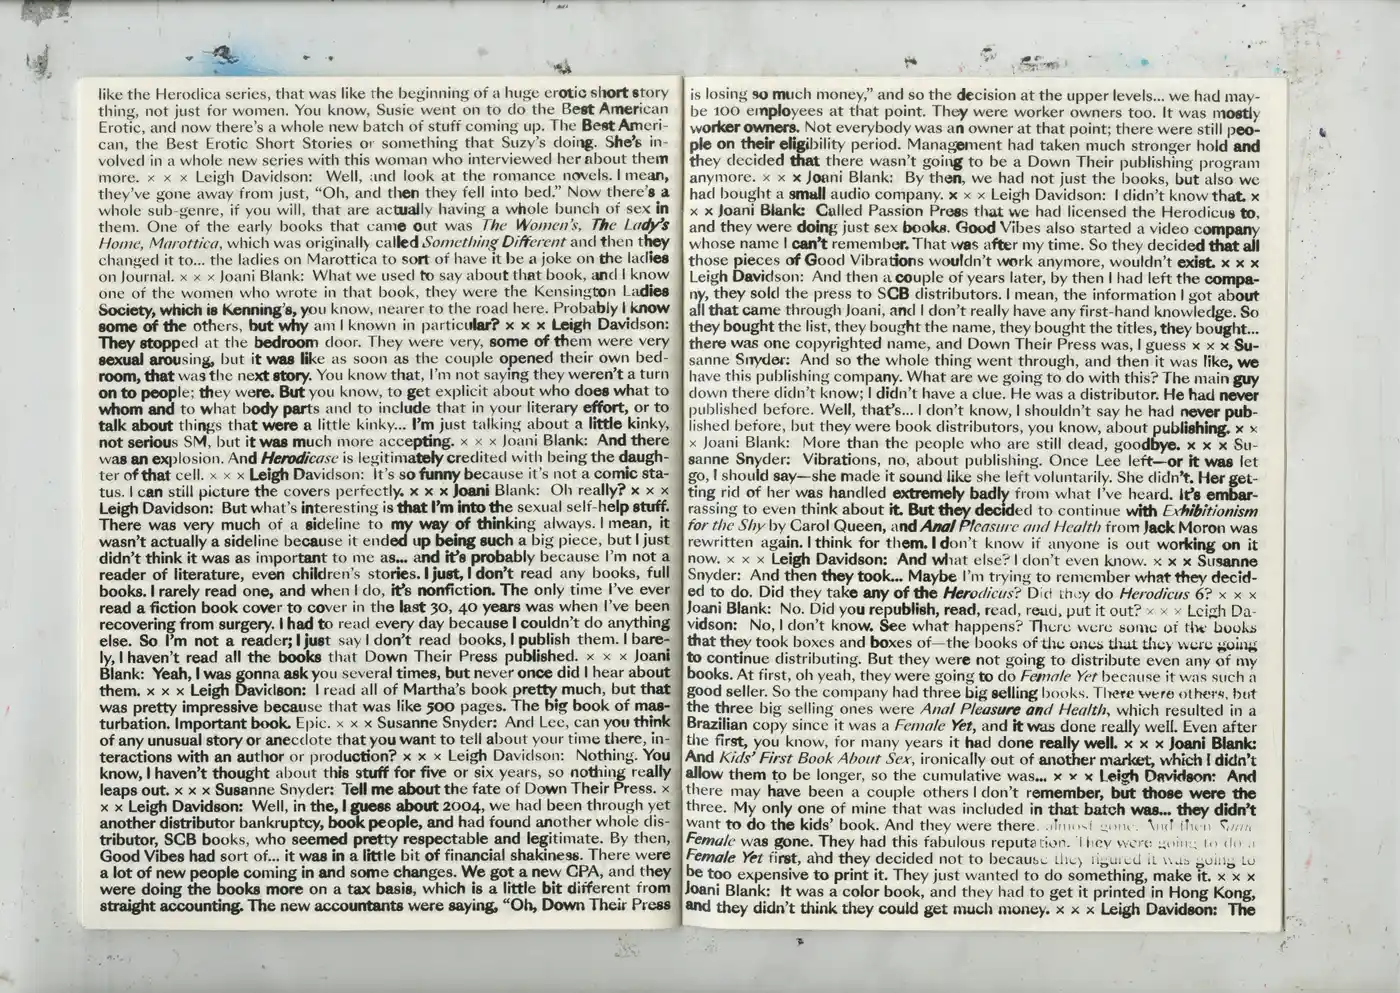 like the Herodica series, that was like the beginning of a huge erotic short story
thing, not just for women. You know, Susie went on to do the Best American
Erotic, and now there's a whole new batch of stuff coming up. The Best Ameri-
can, the Best Erotic Short Stories or something that Suzy's doing. She's in-
volved in a whole new series with this woman who interviewed her about them
more. × × × Leigh Davidson: Well, and look at the romance novels. I mean,
they've gone away from just, “Oh, and then they fell into bed.” Now there's a
whole sub-genre, if you will, that are actually having a whole bunch of sex in
them. One of the early books that came out was The Women's, The Lady's
Home, Marottica, which was originally called Something Different and then they
changed it to... the ladies on Marottica to sort of have it be a joke on the ladies
on Journal. × × × Joani Blank: What we used to say about that book, and I know
one of the women who wrote in that book, they were the Kensington Ladies
Society, which is Kenning's, you know, nearer to the road here. Probably I know
some of the others, but why am I known in particular? × × × Leigh Davidson:
They stopped at the bedroom door. They were very, some of them were very
sexual arousing, but it was like as soon as the couple opened their own bed-
room, that was the next story. You know that, I'm not saying they weren't a turn
on to people; they were. But you know, to get explicit about who does what to
whom and to what body parts and to include that in your literary effort, or to
talk about things that were a little kinky... I'm just talking about a little kinky,
not serious SM, but it was much more accepting. × × × Joani Blank: And there
was an explosion. And Herodicase is legitimately credited with being the daugh-
ter of that cell. × × × Leigh Davidson: It's so funny because it's not a comic sta-
tus. I can still picture the covers perfectly. × × × Joani Blank: Oh really? × × ×
Leigh Davidson: But what's interesting is that I'm into the sexual self-help stuff.
There was very much of a sideline to my way of thinking always. I mean, it
wasn't actually a sideline because it ended up being such a big piece, but I just
didn't think it was as important to me as... and it's probably because I'm not a
reader of literature, even children's stories. I just, I don't read any books, full
books. I rarely read one, and when I do, it's nonfiction. The only time I've ever
read a fiction book cover to cover in the last 30, 40 years was when I've been
recovering from surgery. I had to read every day because I couldn't do anything
else. So I'm not a reader; I just say I don't read books, I publish them. I bare-
ly, I haven't read all the books that Down Their Press published. × × × Joani
Blank: Yeah, I was gonna ask you several times, but never once did I hear about
them. × × × Leigh Davidson: I read all of Martha's book pretty much, but that
was pretty impressive because that was like 500 pages. The big book of mas-
turbation. Important book. Epic. × × × Susanne Snyder: And Lee, can you think
of any unusual story or anecdote that you want to tell about your time there, in-
teractions with an author or production? × × × Leigh Davidson: Nothing. You
know, I haven't thought about this stuff for five or six years, so nothing really
leaps out. × × × Susanne Snyder: Tell me about the fate of Down Their Press. ×
× × Leigh Davidson: Well, in the, I guess about 2004, we had been through yet
another distributor bankruptcy, book people, and had found another whole dis-
tributor, SCB books, who seemed pretty respectable and legitimate. By then,
Good Vibes had sort of... it was in a little bit of financial shakiness. There were
a lot of new people coming in and some changes. We got a new CPA, and they
were doing the books more on a tax basis, which is a little bit different from
straight accounting. The new accountants were saying, “Oh, Down Their Press
is losing so much money,” and so the decision at the upper levels... we had may-
be 100 employees at that point. They were worker owners too. It was mostly
worker owners. Not everybody was an owner at that point; there were still peo-
ple on their eligibility period. Management had taken much stronger hold and
they decided that there wasn't going to be a Down Their publishing program
anymore. × × × Joani Blank: By then, we had not just the books, but also we
had bought a small audio company. × × × Leigh Davidson: I didn't know that. ×
× × Joani Blank: Called Passion Press that we had licensed the Herodicus to,
and they were doing just sex books. Good Vibes also started a video company
whose name I can't remember. That was after my time. So they decided that all
those pieces of Good Vibrations wouldn't work anymore, wouldn't exist. × × ×
Leigh Davidson: And then a couple of years later, by then I had left the compa-
ny, they sold the press to SCB distributors. I mean, the information I got about
all that came through Joani, and I don't really have any first-hand knowledge. So
they bought the list, they bought the name, they bought the titles, they bought...
there was one copyrighted name, and Down Their Press was, I guess × × × Su-
sanne Snyder: And so the whole thing went through, and then it was like, we
have this publishing company. What are we going to do with this? The main guy
down there didn't know; I didn't have a clue. He was a distributor. He had never
published before. Well, that's... I don't know, I shouldn't say he had never pub-
lished before, but they were book distributors, you know, about publishing. × ×
× Joani Blank: More than the people who are still dead, goodbye. × × × Su-
sanne Snyder: Vibrations, no, about publishing. Once Lee left—or it was let
go, I should say—she made it sound like she left voluntarily. She didn't. Her get-
ting rid of her was handled extremely badly from what I've heard. It's embar-
rassing to even think about it. But they decided to continue with Exhibitionism
for the Shy by Carol Queen, and Anal Pleasure and Health from Jack Moron was
rewritten again. I think for them. I don't know if anyone is out working on it
now. × × × Leigh Davidson: And what else? I don't even know. × × × Susanne
Snyder: And then they took... Maybe I'm trying to remember what they decid-
ed to do. Did they take any of the Herodicus? Did they do Herodicus 6? × × ×
Joani Blank: No. Did you republish, read, read, read, put it out? × × × Leigh Da-
vidson: No, I don't know. See what happens? There were some of the books
that they took boxes and boxes of—the books of the ones that they were going
to continue distributing. But they were not going to distribute even any of my
books. At first, oh yeah, they were going to do Female Yet because it was such a
good seller. So the company had three big selling books. There were others, but
the three big selling ones were Anal Pleasure and Health, which resulted in a
Brazilian copy since it was a Female Yet, and it was done really well. Even after
the first, you know, for many years it had done really well. × × × Joani Blank:
And Kids' First Book About Sex, ironically out of another market, which I didn't
allow them to be longer, so the cumulative was... × × × Leigh Davidson: And
there may have been a couple others I don't remember, but those were the
three. My only one of mine that was included in that batch was... they didn't
want to do the kids' book. And they were there. almost gone. And then
Female was gone. They had this fabulous reputation. They were going to do a
Female Yet first, and they decided not to because they figured it was going to
be too expensive to print it. They just wanted to do something, make it. × × ×
Joani Blank: It was a color book, and they had to get it printed in Hong Kong,
and they didn't think they could get much money. × × × Leigh Davidson: The